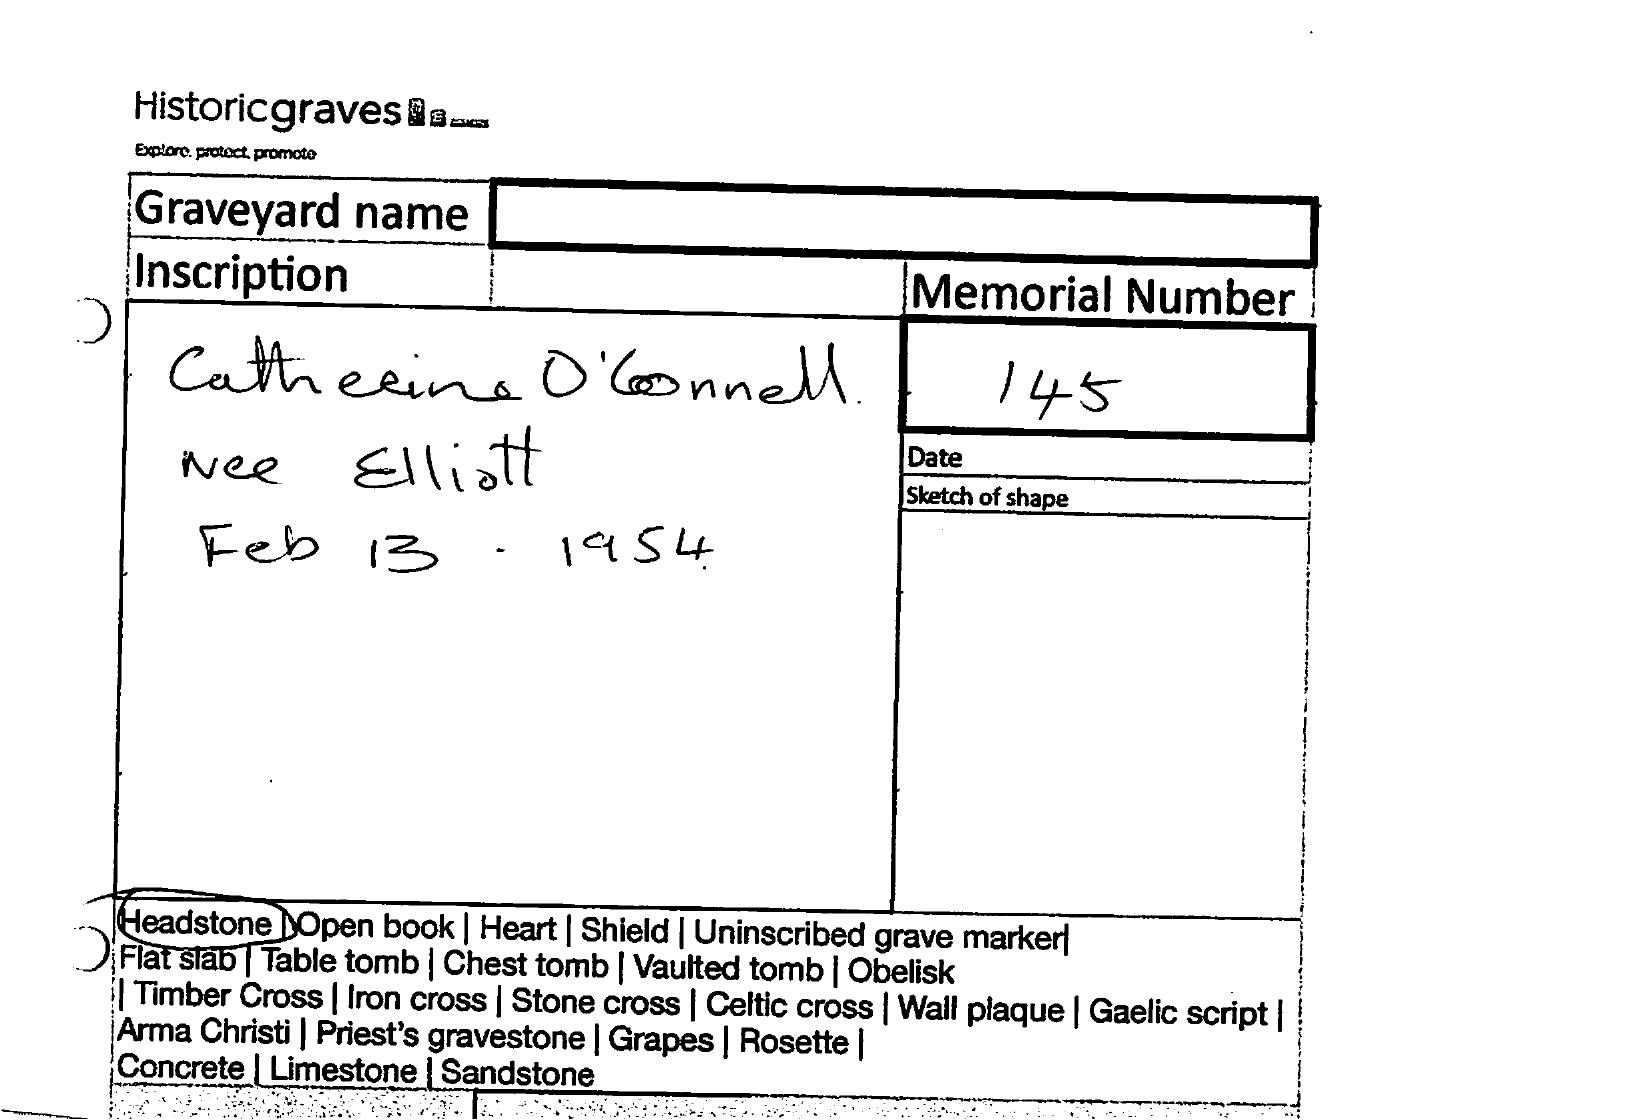 Historicgraves
Explore. protect. promote
Graveyard name
Inscription
Memorial Number
Catherine O'Connell.
145
nee Elliott
Date
Sketch of shape
Feb 13 . 1954.
Headstone | Open book | Heart | Shield | Uninscribed grave marker|
Flat slab | Table tomb | Chest tomb | Vaulted tomb | Obelisk
| Timber Cross | Iron cross | Stone cross | Celtic cross | Wall plaque | Gaelic script |
Arma Christi | Priest's gravestone | Grapes | Rosette |
Concrete | Limestone | Sandstone